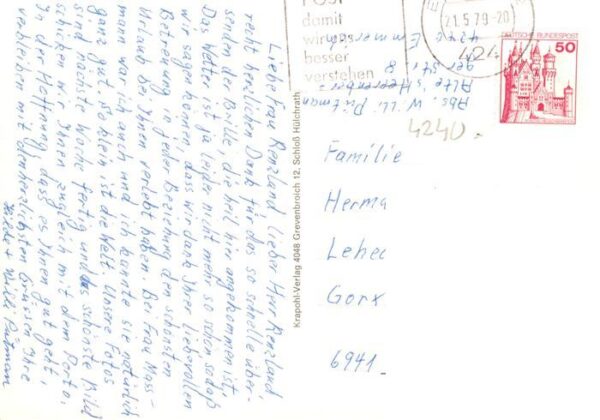 Liebe Frau Renzland, lieber Herr Renzland,
recht herzlichen Dank für das so schnelle über-
senden der Brille, die heil hier angekommen ist.
Das Wetter ist ja leider nicht mehr so schön sodaß
wir sagen können, dass wir dank Ihrer liebevollen
Betreuung in jeder Beziehung den schönsten
Urlaub bei Ihnen verlebt haben. Bei Frau Nass-
mann war ich auch und ich konnte sie natürlich
ganz gut. So klein ist die Welt. Unsere Fotos
sind nächste Woche fertig und das schönste Bild
schicken wir Ihnen zugleich mit dem Porto.
In der Hoffnung, dass es Ihnen gut geht,
verbleiben mit den herzlichsten Grüssen Ihre
Hilde + Willi Pütman
Krapohl-Verlag 4048 Grevenbroich 12, Schloß Hülchrath
POST
damit
wir uns
besser
verstehen
21.5.79-20
DEUTSCHE BUNDESPOST
50
Abs. Willi Pütman
Alte
8
4240 Emmerich
424
4240.
Familie
Herma
Lehec
Gorx
6941